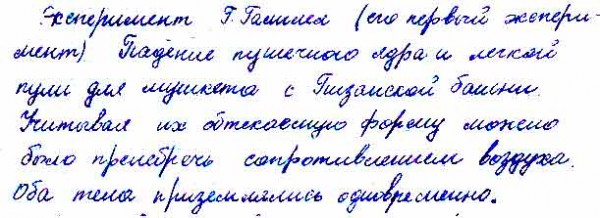 Эксперимент Г. Галилея (его первый экспери-
мент) Падение пушечного ядра и легкой
пули для мушкета с Пизанской башни.
Учитывая их обтекаемую форму можно
было пренебречь сопротивлением воздуха.
Оба тела приземлялись одновременно.